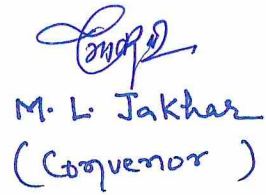 M. L. Jakhar
(Convenor)